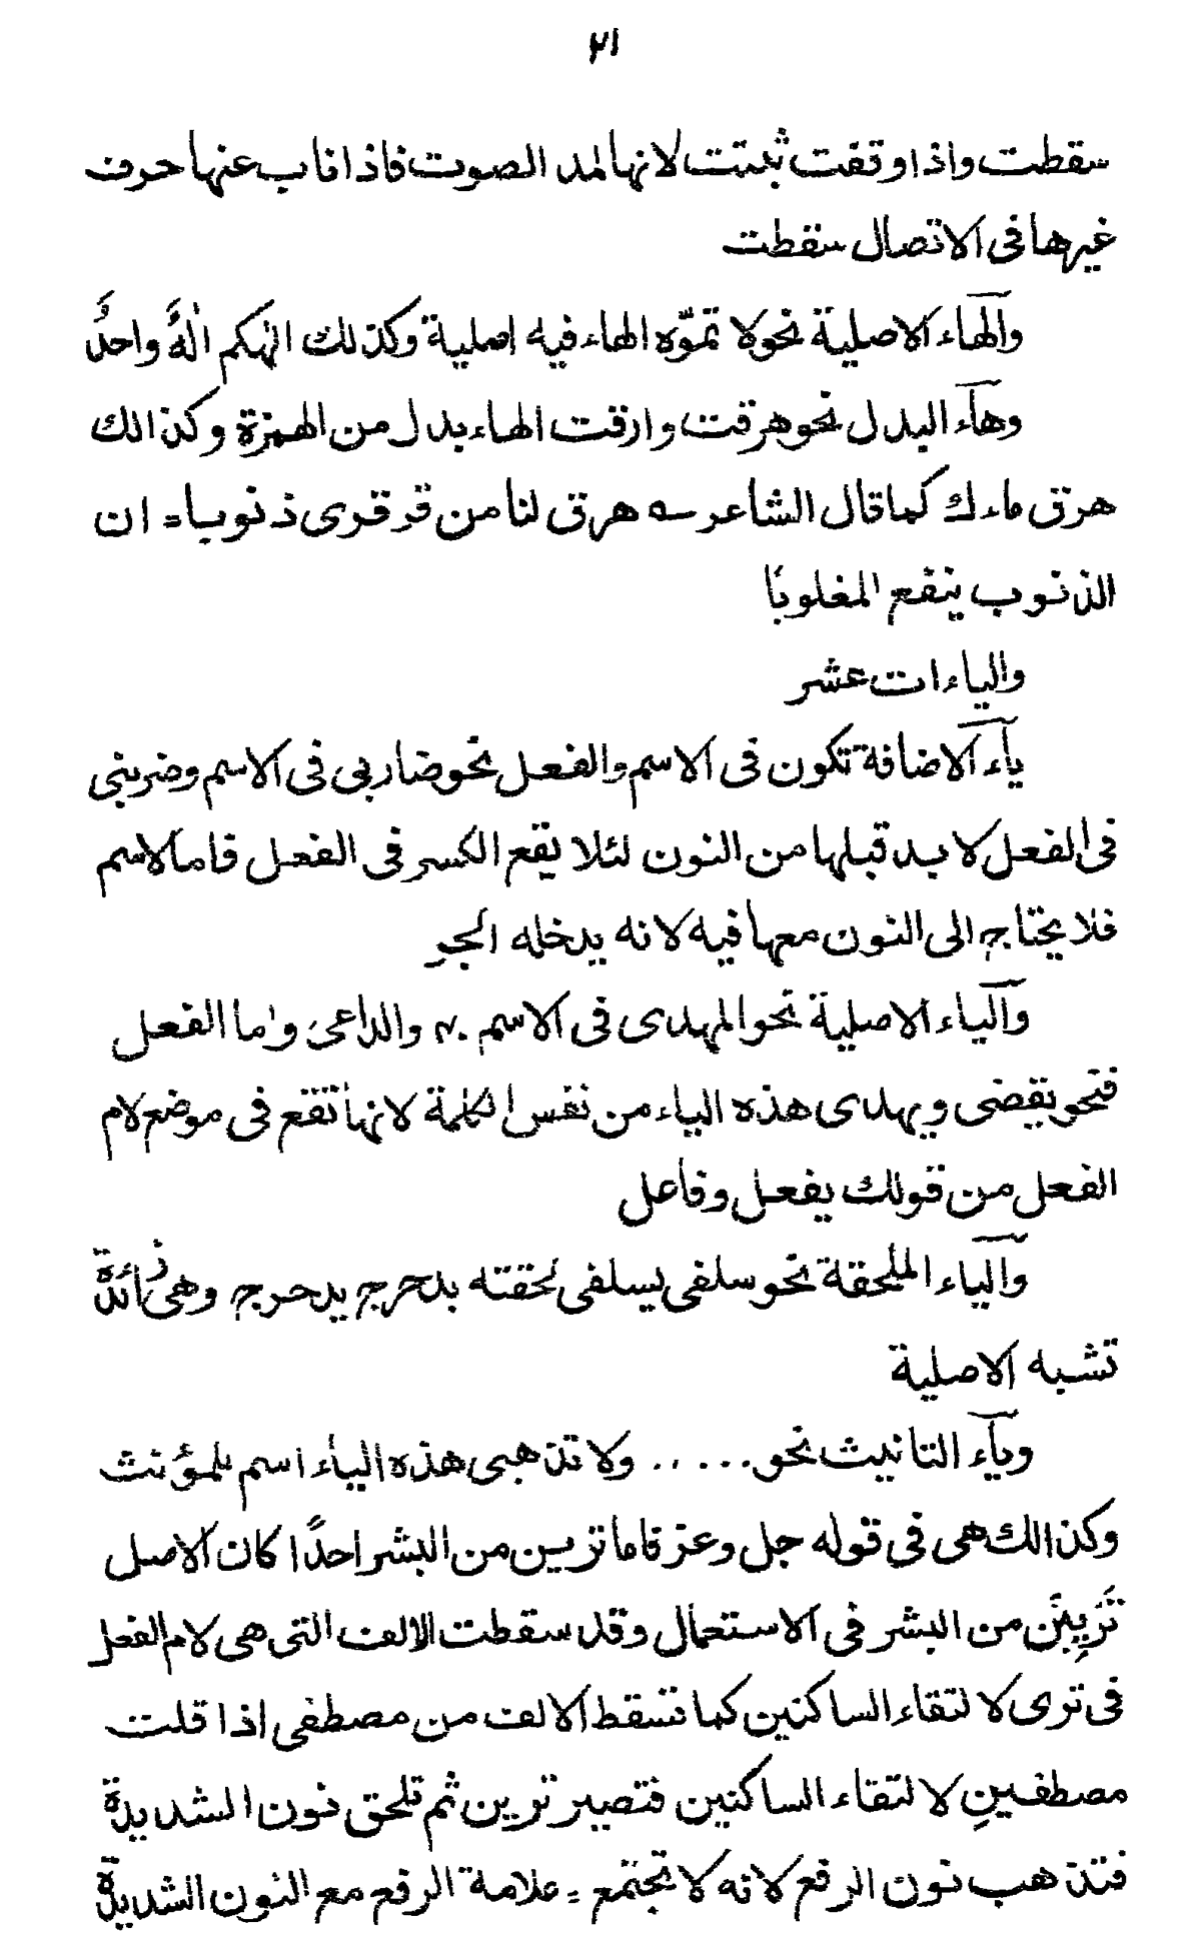 ٢١
سقطت واذا وقفت ثبتت لانها لمد الصوت فاذا ناب عنها حرف
غيرها فى الاتصال سقطت
والهاء الاصلية نحو لا تموّه الهاء فيه اصلية وكذلك الهكم الهٌ واحدٌ
وهآء البدل نحو هرقت وارقت الهاء بدل من الهمزة وكذالك
هرق ماءك كما قال الشاعر ؎ هرق لنا من قرقرى ذنوبا = ان
الذنوب ينفع المغلوبًا
والياءات عشر
يآء الاضافة تكون فى الاسم والفعل نحو ضاربى فى الاسم وضربنى
فى الفعل لا بد قبلها من النون لئلا يقع الكسر فى الفعل فاما الاسم
فلا يحتاج الى النون معها فيه لانه يدخله الجر
والياء الاصلية نحو المهدى فى الاسم والداعى واما الفعل
فنحو يقضى ويهدى هذه الياء من نفس الكلمة لانها تقع فى موضع لام
الفعل من قولك يفعل وفاعل
والياء الملحقة نحو سلقى يسلقى لحقته بدحرج يدحرج وهى زائدة
تشبه الاصلية
ويآء التانيث نحو..... ولا تذهبى هذه الياء اسم للمؤنث
وكذالك هى فى قوله جل وعز فاما ترين من البشر احدًا كان الاصل
تَرَيِيْنَ من البشر فى الاستعمال وقد سقطت الالف التى هى لام الفعل
فى ترى لالتقاء الساكنين كما تسقط الالف من مصطفى اذا قلت
مصطفينِ لالتقاء الساكنين فتصير ترين ثم تلحق نون الشديدة
فتذهب نون الرفع لانه لا تجتمع = علامة الرفع مع النون الشديدة